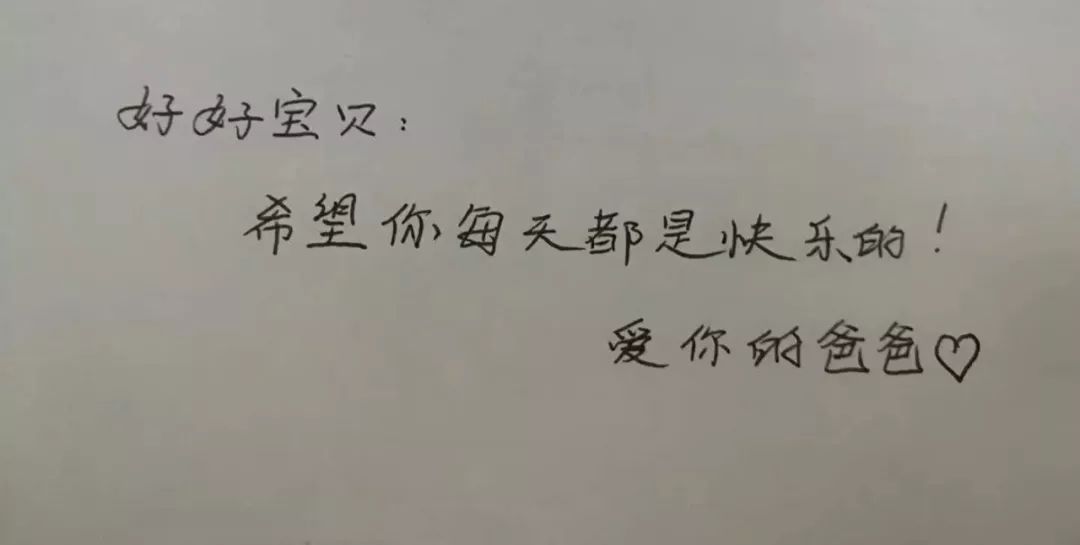 好好宝贝：
希望你每天都是快乐的！
爱你的爸爸♡